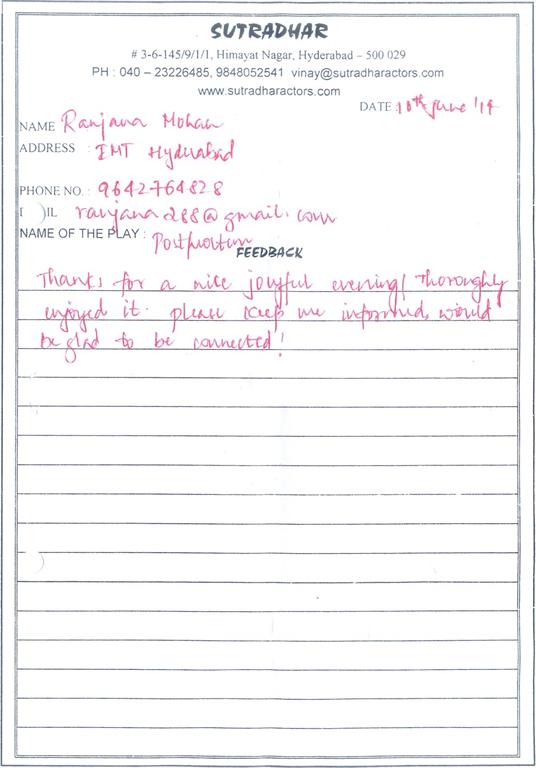 SUTRADHAR
# 3-6-145/9/1/1, Himayat Nagar, Hyderabad – 500 029
PH : 040 – 23226485, 9848052541 vinay@sutradharactors.com
www.sutradharactors.com
DATE : 10th June '14
NAME Ranjana Mohan
ADDRESS : IMT Hyderabad
PHONE NO. : 9642764828
IL ranjana288@gmail.com
NAME OF THE PLAY : Postpartum
FEEDBACK
Thanks for a nice joyful evening! Thoroughly
enjoyed it. please keep me informed, would
be glad to be connected!